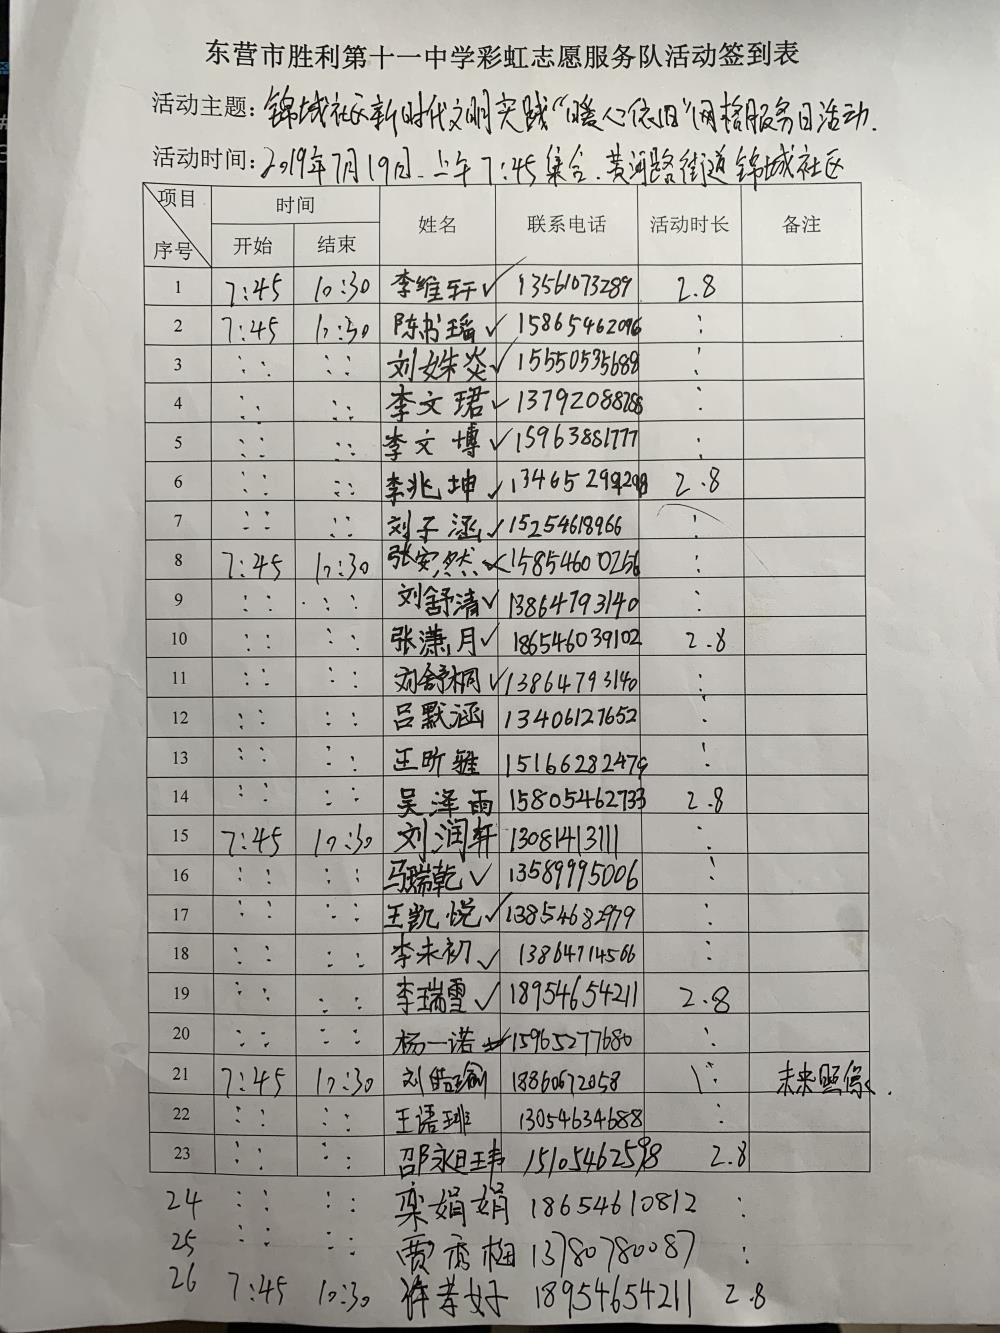 东营市胜利第十一中学彩虹志愿服务队活动签到表
活动主题: 锦城社区新时代文明实践“暖心依旧”网格服务日活动.
活动时间: 2019年7月19日 上午7:45集合. 黄河路街道锦城社区
项目 时间 姓名 联系电话 活动时长 备注
序号 开始 结束
1 7:45 10:30 李维轩✓ 13561073289 2.8
2 7:45 10:30 陈书瑶✓ 15865462096 :
3 : : : : 刘姝炎✓ 15550535688 :
4 : : : : 李文珺✓ 13792088788 :
5 : : : : 李文博✓ 15963881777 :
6 : : : : 李兆坤✓ 2.8
7 : : : : 刘子涵✓ 15254618966 :
8 7:45 10:30 张安然✓ 15854600256 :
9 : : : : 刘舒清✓ 13864793140 :
10 : : : : 张潇月✓ 186546039102 2.8
11 : : : : 刘舒桐✓ 13864793140 :
12 : : : : 吕默涵 13406127652 :
13 : : : : 王昕雅 15166282479 :
14 : : : : 吴泽雨 15805462733 2.8
15 7:45 10:30 刘润轩 13081413111 :
16 : : : : 马瑞乾✓ 13589995006 :
17 : : : : 王凯悦✓ 13854682979 :
18 : : : : 李未初✓ 13864714566 :
19 : : : : 李瑞雪✓ 18954654211 2.8
20 : : : : 杨一诺 15965277680 :
21 7:45 10:30 刘皓瑜 18860672058 : 未来照像.
22 : : : : 王语琲 13054634688 :
23 : : : : 邵永玮 15105462598 2.8
24 : : : : 栾娟娟 18654610812 :
25 : : : : 贾秀梅 13780780087 :
26 7:45 10:30 许孝好 18954654211 2.8